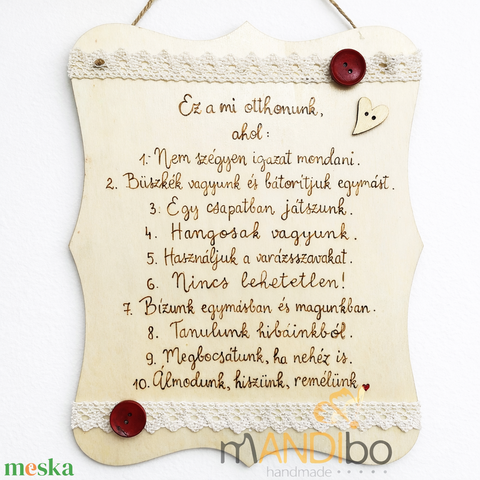 Ez a mi otthonunk,
ahol:
1. Nem szégyen igazat mondani.
2. Büszkék vagyunk és bátorítjuk egymást.
3. Egy csapatban játszunk.
4. Hangosak vagyunk.
5. Használjuk a varázsszavakat.
6. Nincs lehetetlen!
7. Bízunk egymásban és magunkban.
8. Tanulunk hibáinkból.
9. Megbocsátunk, ha nehéz is.
10. Álmodunk, hiszünk, remélünk
mANDIbo
handmade
meska